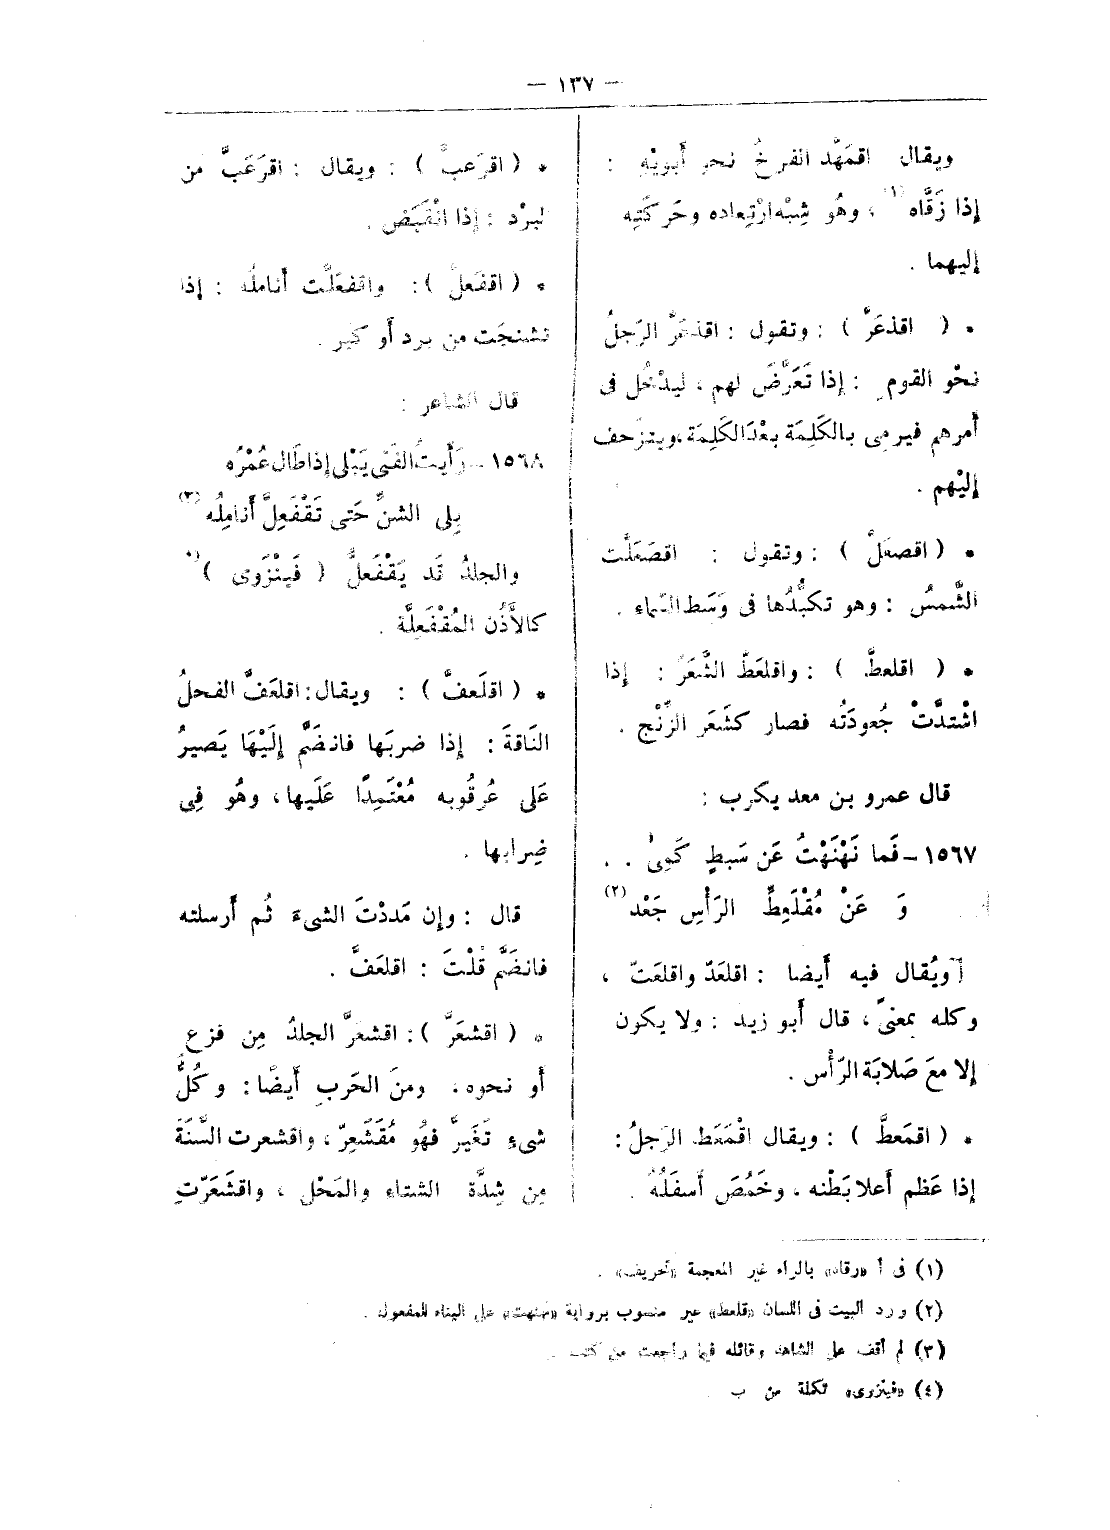 — ١٣٧ —
ويقال اقمَهَّد الفرخُ نحو أَبويْه :
إذا زَقَّاه (١) ، وهُو شِبْه ارْتِعاده وحَركَتِه
إليهما .
* ( اقذعَرَّ ) : وتقول : اقذعَرَّ الرَجلُ
نحْو القوم : إذا تَعَرَّضَ لهم ، ليدْخُل فى
أَمرهم فيرمِى بالكَلِمَة بعْدَ الكَلِمَة ، ويتزَحف
إليْهم .
* ( اقصعَلَّ ) : وتقول : اقصَعَلَّت
الشَّمسُ : وهو تكبُّدُها فى وَسَط السَّماء .
* ( اقلعطَّ ) : واقلعَطَّ الشَّعَرُ : إذا
اشْتدَّتْ جُعودَتُه فصار كشَعَر الزِّنْج .
قال عمرو بن معد يكرب :
١٥٦٧ – فَما نَهْنَهْتُ عَن سَبطٍ كَمِىٍّ . .
وَ عَنْ مُقْلَعِطِّ الرَأْسِ جَعْد (٢)
[ ويُقال فيه أَيضا : اقلعَدّ واقلعَتّ ،
وكله بمعنىً ، قال أَبو زيد : ولا يكون
إلا معَ صَلابَة الرّأْس .
* ( اقمَعطَّ ) : ويقال اقْمَعَط الرَجلُ :
إذا عَظم أَعلا بَطْنه ، وخَمُصَ أَسفَلُهُ .
* ( اقرَعبَّ ) : ويقال : اقرَعَبَّ من
البرْد : إذا انْقَبَض .
* ( اقفَعلَّ ) : واقفعَلَّت أَناملُه : إذا
تشنجَت من برد أَو كبر .
قال الشاعر :
١٥٦٨ – رَأَيتُ الفَتى يَبْلى إذا طَال عُمْرُه
بِلى الشنِّ حَتى تَقْفَعِلَّ أَنامِلُه (٣)
والجلدُ قَد يَقْفَعلُّ ( فَينْزَوى ) (٤)
كالأُذُن المُقْفَعِلَّة .
* ( اقلَعفَّ ) : ويقال : اقلعَفَّ الفحلُ
النَاقةَ : إذا ضربَها فانضَمَّ إلَيْهَا يَصيرُ
عَلى عُرقُوبه مُعْتَمِدًا عَلَيها ، وهُو فِى
ضِرابها .
قال : وإن مَددْتَ الشىءَ ثُم أَرسلته
فانضَمَّ قُلْتَ : اقلعَفَّ .
* ( اقشعَرَّ ) : اقشعرَّ الجلدُ مِن فزع
أَو نحوه ، ومنَ الحَربِ أَيضًا : وكُلُّ
شىءِ تَغَيرَّ فهُو مُقشَعِرّ ، واقشعرت السَّنَةَ
مِن شِدَّة الشتاءِ والمَحْل ، واقشَعَرّتِ
(١) فى أ «رقاه» بالراء غير المعجمة «تحريف» .
(٢) ورد البيت فى اللسان «قلعط» غير منسوب برواية «نهنهت» على البناء للمفعول .
(٣) لم أقف على الشاهد وقائله فيما راجعت من كتب .
(٤) «فينزوى» تكملة من ب .